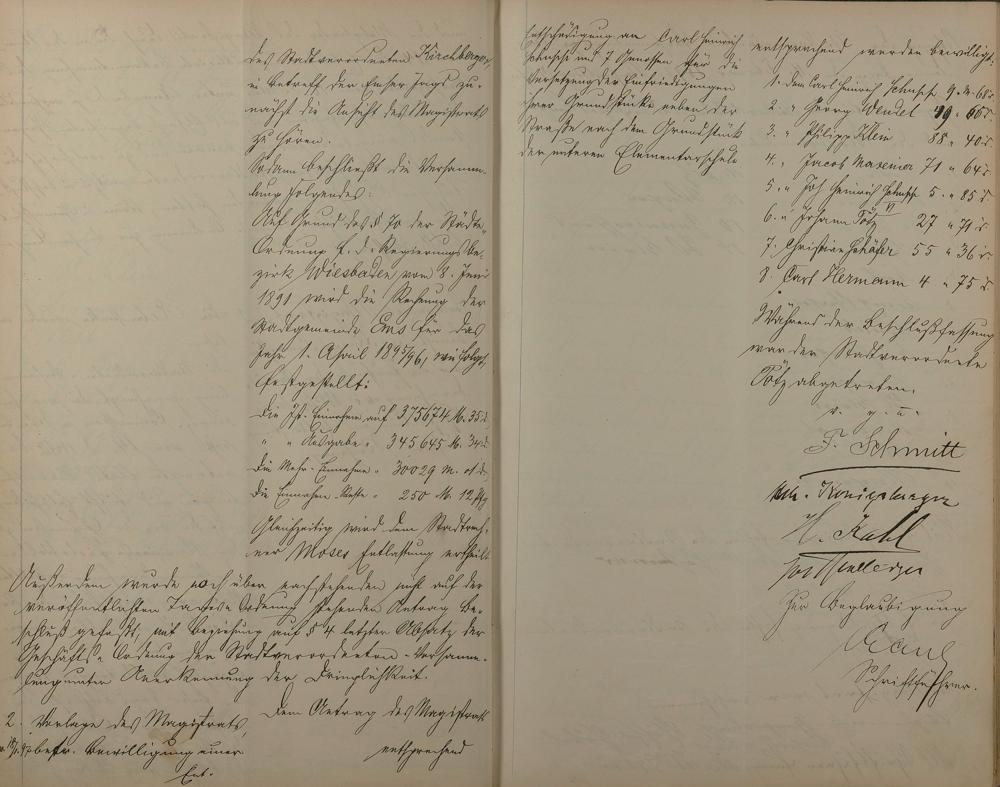 des Stadtverordneten Kirchberger
in Betreff der Emser Jagd zu-
nächst die Ansicht des Magistrats
zu hören.
Sodann beschließt die Versamm-
lung Folgendes:
Auf Grund des § 70 der Städte-
Ordnung f. d. Regierungsbe-
zirk Wiesbaden vom 8. Juni
1891 wird die Rechnung der
Stadtgemeinde Ems für das
Jahr 1. April 1895/96, wie folgt,
festgestellt:
Die Ist-Einnahme auf 375674 M. 35 d.
" " Ausgabe " 345645 M. 34 d.
Die Mehr-Einnahme " 30029 M. 01 d.
Die Einnahme-Reste " 250 M. 12 Pfg
Gleichzeitig wird dem Stadtrech-
ner Moses Entlastung ertheilt.
Außerdem wurde noch über nachstehenden nicht auf der
veröffentlichten Tages-Ordnung stehenden Antrag Be-
schluß gefaßt, mit Beziehung auf § 4 letzter Absatz der
Geschäfts-Ordnung der Stadtverordneten-Versamm-
lung unter Anerkennung der Dringlichkeit.
2. Vorlage des Magistrats,
betr. Bewilligung einer
Ent-
Dem Antrag des Magistrats
entsprechend
Entschädigung an Carl Heinrich
und 7 Genossen für die
Versetzung der Einfriedigungen
ihrer Grundstücke neben der
Straße nach dem Grundstück
der unteren Elementarschule
entsprechend werden bewilligt:
1. dem Carl Heinrich 9 M. 68 d.
2. " Georg Wendel 19 " 66 d.
3. " Philipp Klein 88 " 40 d.
4. " Jacob Massenior 71 " 64 d.
5. " Joh Heinrich 5 " 85 d.
6. " Johann Tötz VI 27 " 71 d.
7. Christian Schäfer 55 " 36 d.
8. Carl Hermann 4 " 75 d.
Während der Beschlußfassung
war der Stadtverordnete
Tötz abgetreten.
v. g. u.
F. Schmitt
Königsberger
H. Kahl
Zur Beglaubigung
Kaul
Schriftführer.